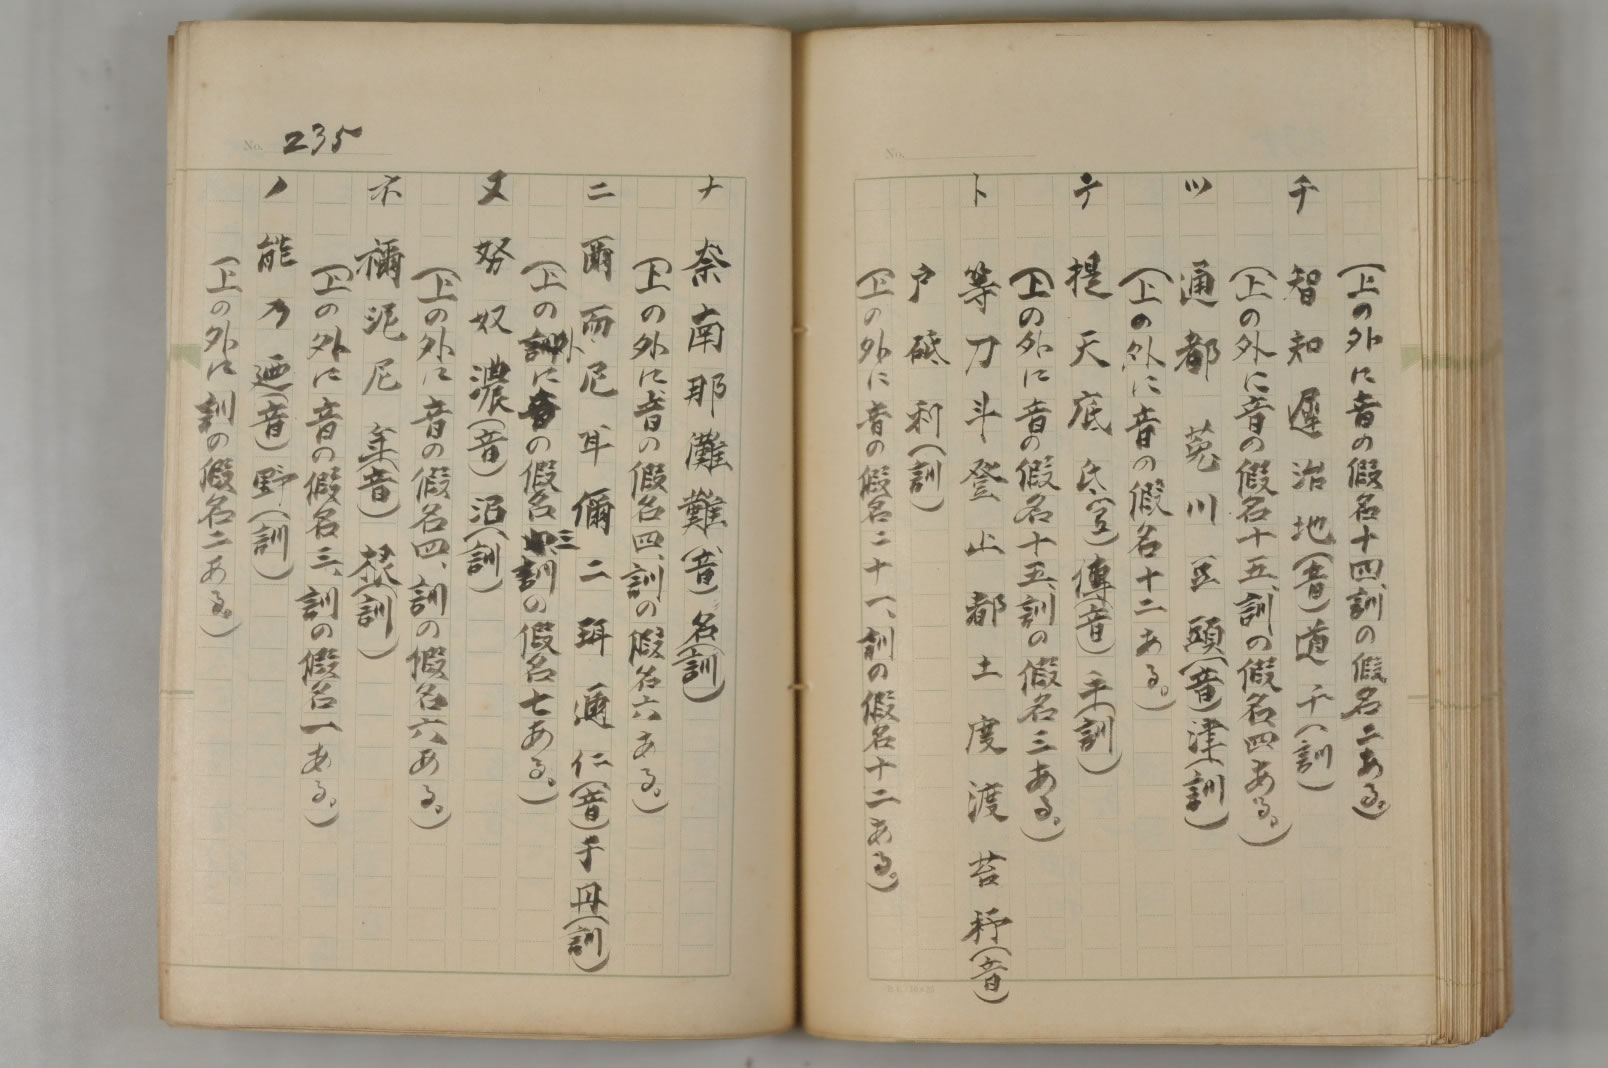 (上の外に音の假名十四、訓の假名二ある。)
チ 智 知 遲 治 地(音)道 千(訓)
(上の外に音の假名十五、訓の假名四ある。)
ツ 通 都 菟 川 豆 頭(音)津(訓)
(上の外に音の假名十二ある。)
テ 提 天 底 氐 傳(音)手(訓)
(上の外に音の假名十五、訓の假名三ある。)
ト 等 刀 斗 登 止 都 土 度 渡 苔 (音)
戸 砥 利(訓)
(上の外に音の假名二十一、訓の假名十二ある。)
No.
No. 235
ナ 奈 南 那 灘 難(音)名(訓)
(上の外に音の假名四、訓の假名六ある。)
ニ 爾 而 尼 耳 儞 二 珥 邇 仁(音)千 丹(訓)
(上の外に音の假名三訓の假名七ある。)
ヌ 努 奴 濃(音)沼(訓)
(上の外に音の假名四、訓の假名六ある。)
ネ 禰 泥 尼 年(音)根(訓)
(上の外に音の假名三、訓の假名一ある。)
ノ 能 乃 廼(音)野(訓)
(上の外に訓の假名二ある。)